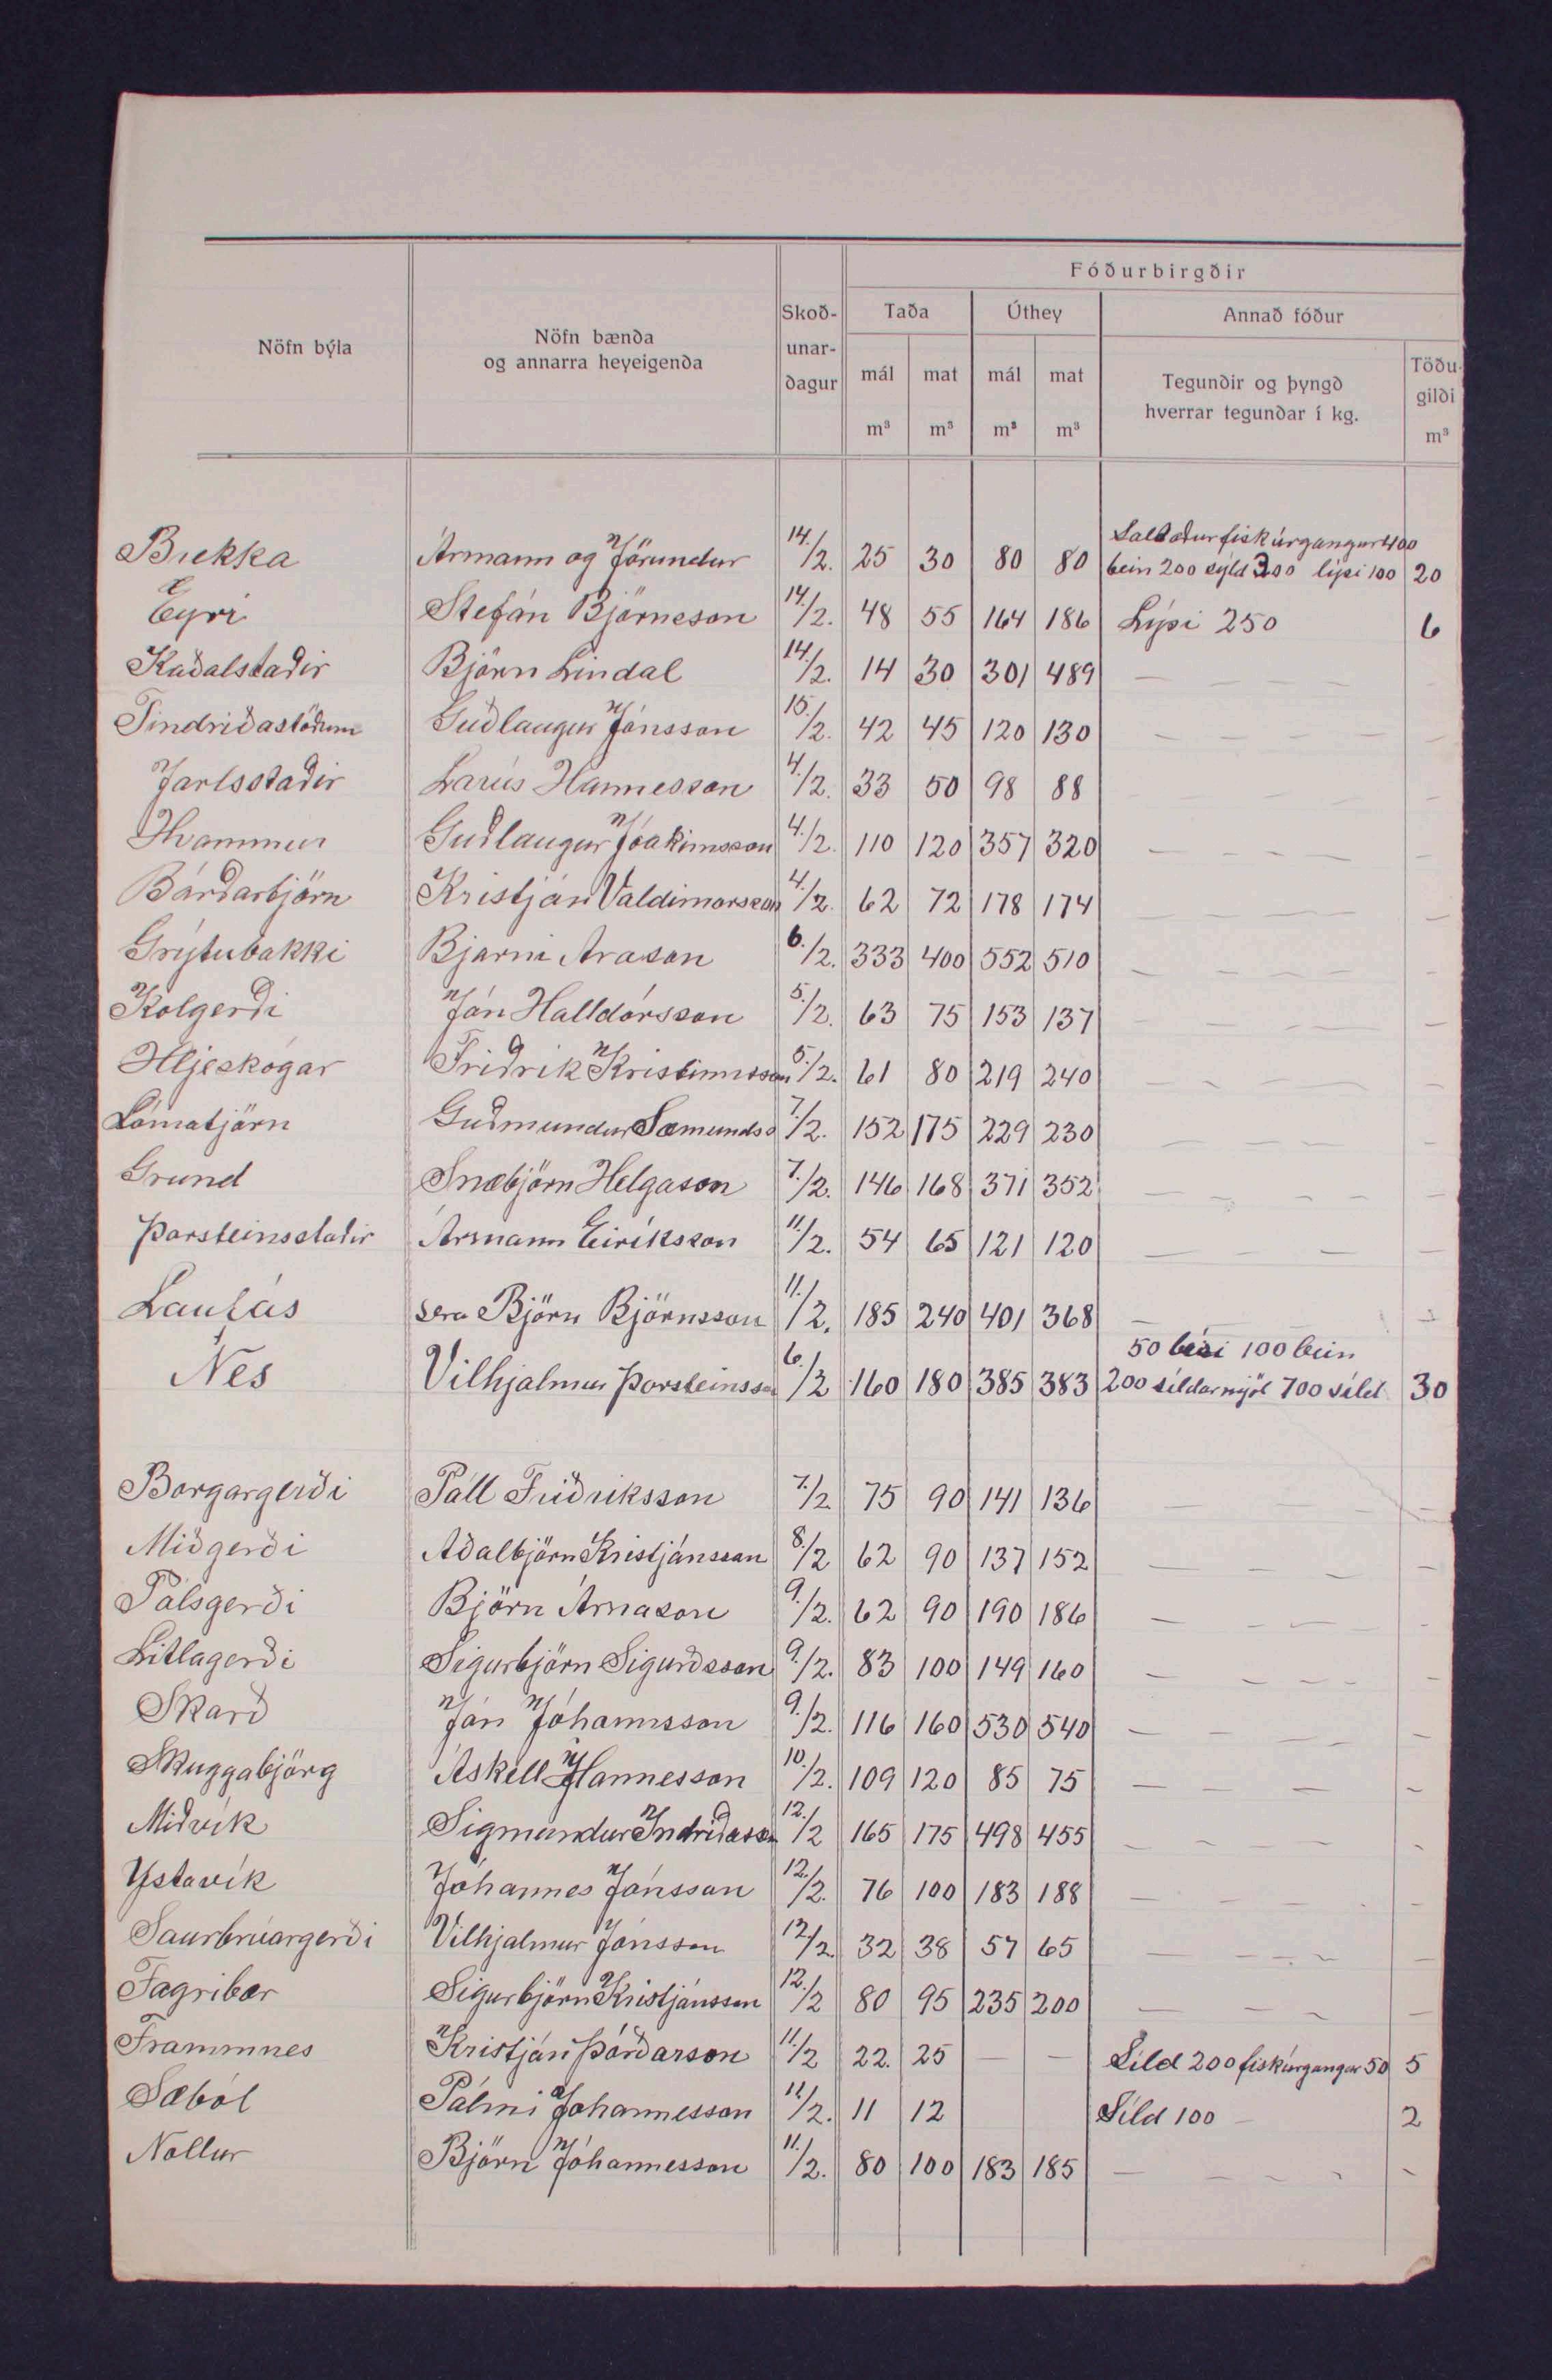 Fóðurbirgðir
Nöfn býla
Nöfn bænda
og annarra heyeigenda
Skoð-
unar-
dagur
Taða
Úthey
Annað fóður
mál
m³
mat
m³
mál
m³
mat
m³
Tegundir og þyngd
hverrar tegundar í kg.
Töðu-
gildi
m³
Saltaður fiskúrgangur 400
Brekka Ármann og Jörundur 14./2. 25 30 80 80 bein 200 sýld 300 lýsi 100 20
Eyri Stefán Björnsson 14./2. 48 55 164 186 Lýsi 250 6
Kaðalstaðir Björn Lindal 14./2. 14 30 301 489 — — — — —
Tindriðastöðum Guðlaugur Jónsson 15./2. 42 45 120 130 — — — — —
Jarlsstaðir Larús Hannesson 4./2. 33 50 98 88 — — — — —
Hvammur Guðlaugur Jóakimsson 4./2. 110 120 357 320 — — — — —
Bárðartjörn Kristján Valdimarsson 4./2. 62 72 178 174 — — — — —
Grýtubakki Bjarni Arason 6./2. 333 400 552 510 — — — — —
Kolgerði Jón Halldórsson 5./2. 63 75 153 137 — — — — —
Hljeskógar Friðrik Kristinnsson 5./2. 61 80 219 240 — — — — —
Lómatjörn Guðmundur Sæmundss 7./2. 152 175 229 230 — — — — —
Grund Snæbjörn Helgason 7./2. 146 168 371 352 — — — — —
Þorsteinsstaðir Ármann Eiríksson 11./2. 54 65 121 120 — — — — —
Laufás sera Björn Björnsson 11./2. 185 240 401 368 — —
50 lýsi 100 bein
Nes Vilhjalmur Þorsteinsson 6./2 160 180 385 383 200 síldarmjöl 700 síld 30
Borgargerði Páll Friðriksson 7./2 75 90 141 136 — — — — —
Miðgerði Aðalbjörn Kristjánsson 8./2 62 90 137 152 — — — — —
Pálsgerði Björn Árnason 9./2. 62 90 190 186 — — — — —
Litlagerði Sigurbjörn Sigurðsson 9./2. 83 100 149 160 — — — — —
Skarð Jón Jóhannsson 9./2. 116 160 530 540 — — — — —
Skuggabjörg Áskell Hannesson 10./2. 109 120 85 75 — — — — —
Miðvík Sigmundur Indriðason 12./2 165 175 498 455 — — — — —
Ystavík Jóhannes Jónsson 12./2. 76 100 183 188 — — — — —
Saurbrúargerði Vilhjalmur Jónsson 12./2. 32 38 57 65 — — — — —
Fagribær Sigurbjörn Kristjánsson 12./2 80 95 235 200 — — — —
Frammnes Kristján Þórðarson 11./2 22. 25 — — Síld 200 fiskúrgangar 50 5
Sæból Pálmi Jóhannesson 11./2. 11 12 Síld 100 — 2
Nollur Björn Jóhannesson 11./2. 80 100 183 185 — — — — —